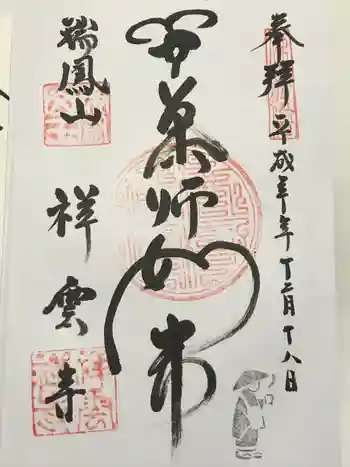 奉拝 平成二十年十二月十八日
薬師如来
瑞鳳山
祥雲寺